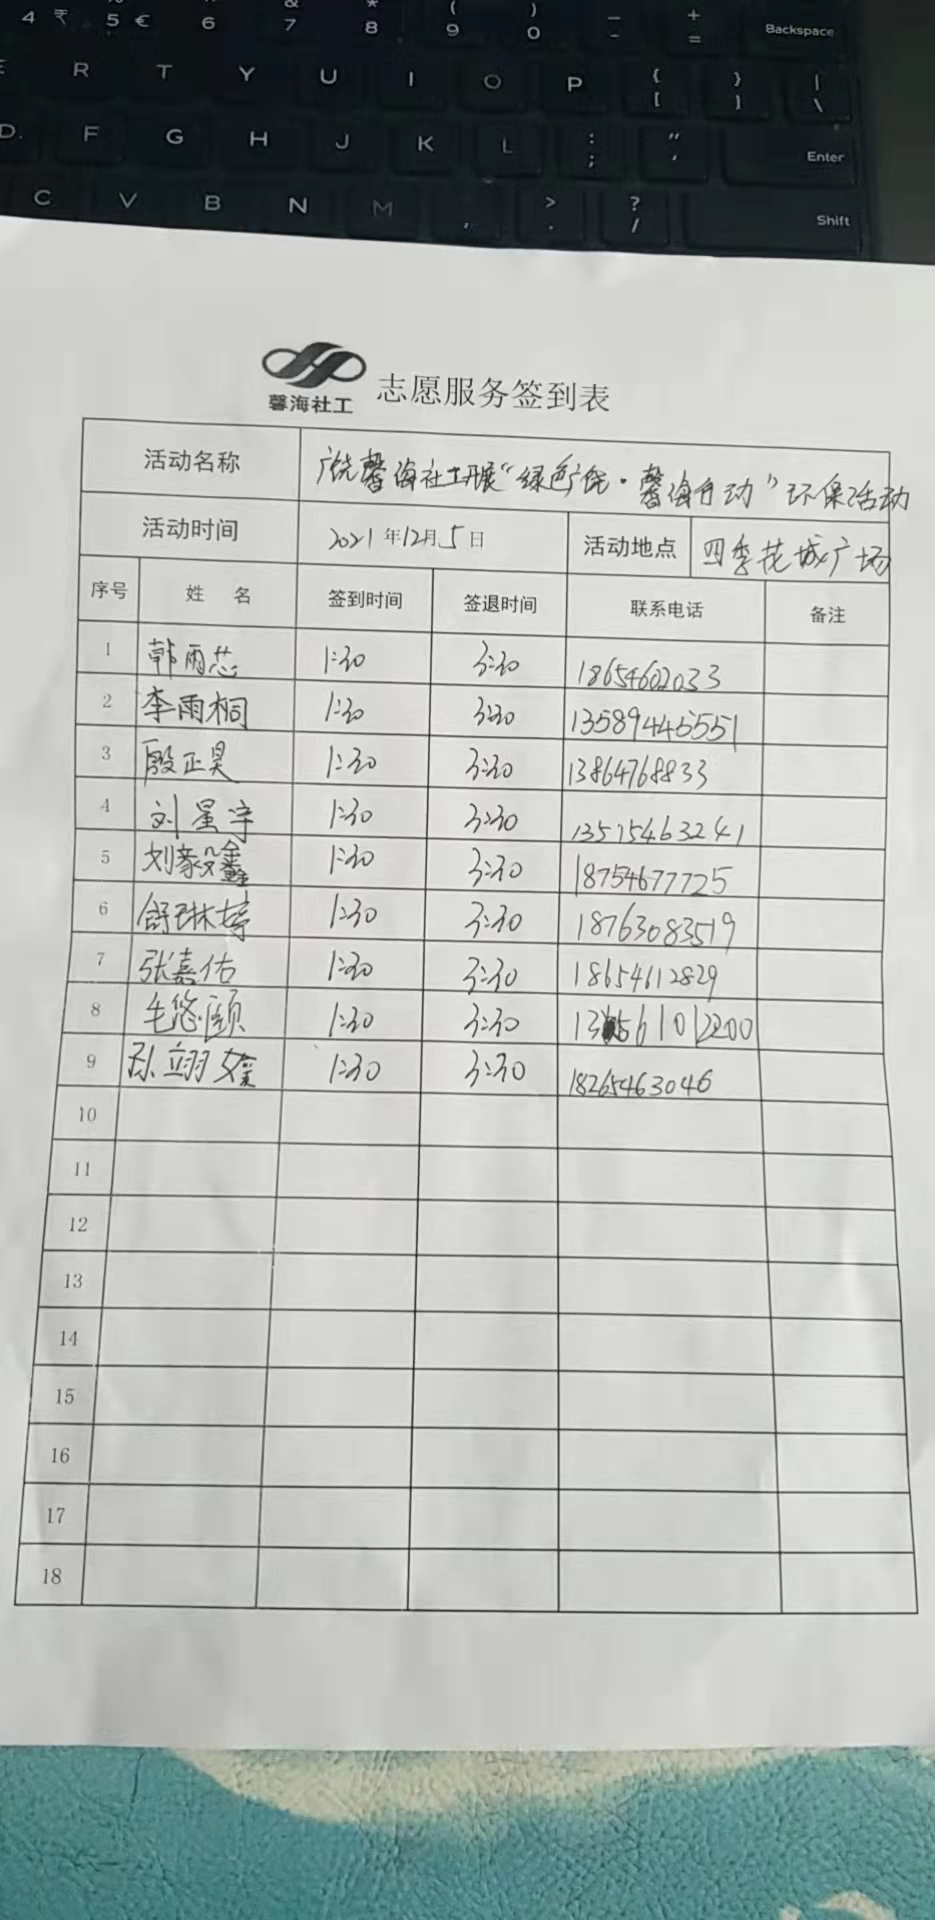 4 ₹ 5 € 6 & 7 * 8 ( 9 ) 0 _ - + = Backspace
R T Y U I O P { [ } ] | \
D F G H J K L : ; " ' Enter
C V B N M , > . ? / Shift
馨海社工
志愿服务签到表
活动名称 广饶馨海社工开展“绿色广饶·馨海行动”环保活动
活动时间 2021年12月5日 活动地点 四季花城广场
序号 姓 名 签到时间 签退时间 联系电话 备注
1 韩雨芯 1:30 3:30 18654602033
2 李雨桐 1:30 3:30 13589446551
3 殷正昊 1:30 3:30 13864768833
4 刘星宇 1:30 3:30 13515463241
5 刘毅鑫 1:30 3:30 18754677725
6 舒琳婷 1:30 3:30 18763083519
7 张嘉佑 1:30 3:30 18654612829
8 毛悠颐 1:30 3:30
9 孙翊 1:30 3:30 18265463046
10
11
12
13
14
15
16
17
18